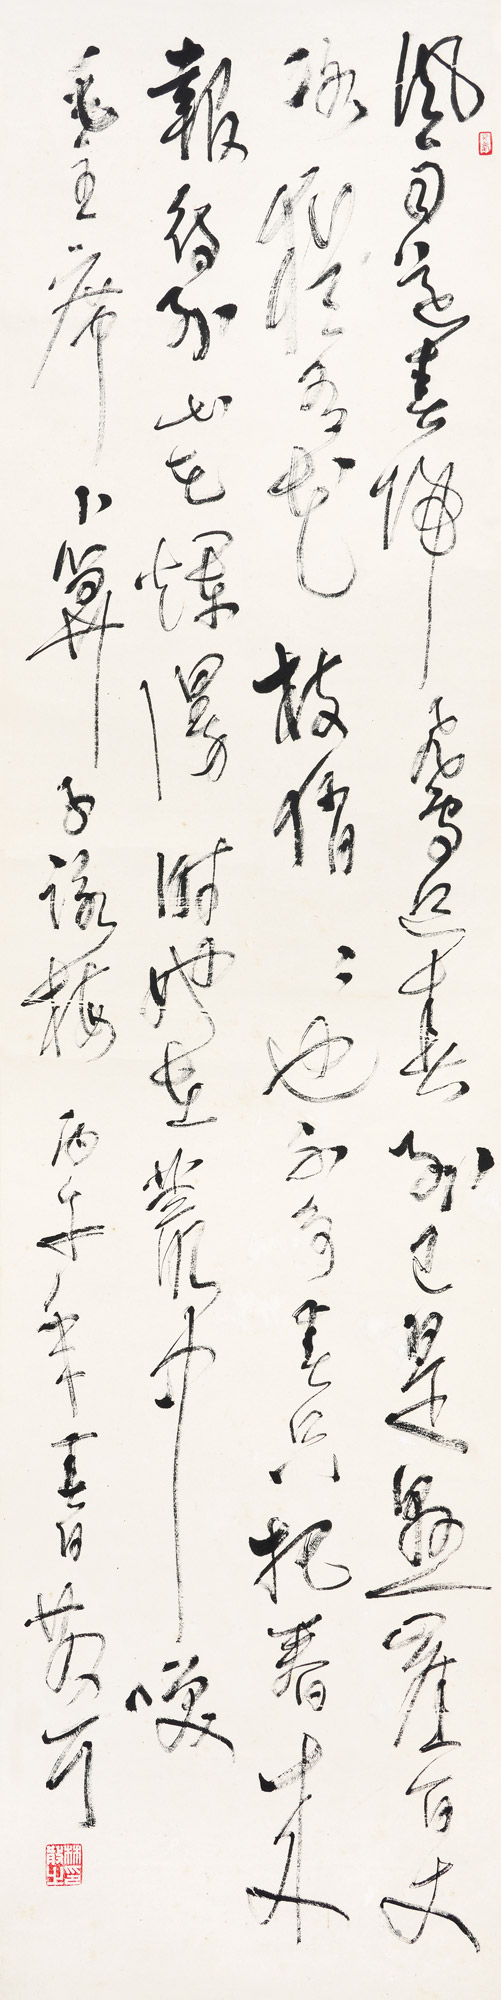 風雨送春歸飛雪迎春到已是懸崖百丈
冰猶有花枝俏々也不爭春只把春來
報待到山花爛漫時她在叢中咲
毛主席卜算子詠梅 丙午年春日散耳
林印散之